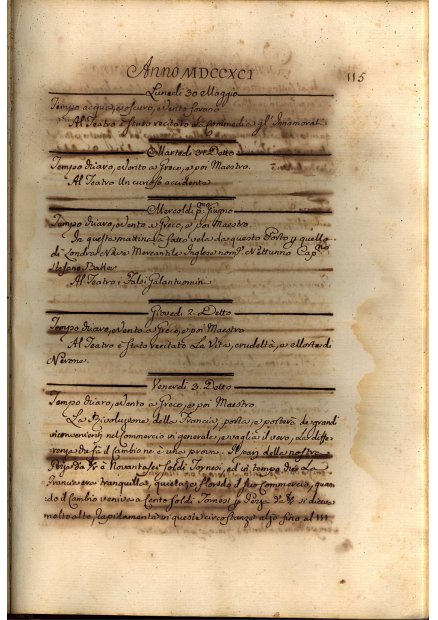 Anno MDCCXCI
115
Lunedì 30 Maggio
Tempo acqua, e oscuro, e Vento
Al Teatro è stato recitato la Commedia gl'Innamorati
Martedì 31 Detto
Tempo chiaro, e Vento a Greco, e poi Maestro.
Al Teatro Un curioso accidente
Mercoldì p.mo Giugno
Tempo chiaro, e Vento a Greco, e poi Maestro.
In questa mattina ha fatto vela da questo Porto p quello
di Londra Nave Mercantile Inglese nom.ta Nettunno Cap.no
Stefano
Al Teatro i Falsi Galantuomin
Giovedì 2. Detto
Tempo chiaro, e Vento a Greco, e poi Maestro
Al Teatro è stato recitato La Vita, crudeltà, e Morte di
Nerone.
Venerdì 3. Detto
Tempo chiaro, e Vento a Greco, e poi Maestro.
La Rivoluzione della Francia, porta, e porterà de grandi
sconvenienti nel Commercio in generale, e vaglia il vero, La diffe
renza che fà il Cambio ne è una prova. Il pari della nostra
Pezza da è Novantasei Soldi Tornesi, ed in tempo che La
Francia era tranquilla, quieta, e florido il suo Commercio, quan
do il Cambio veniva a Cento Soldi Tornesi p Pezza da si diceva
molto alto, rapidamente in queste circostanze alzò fino al 111